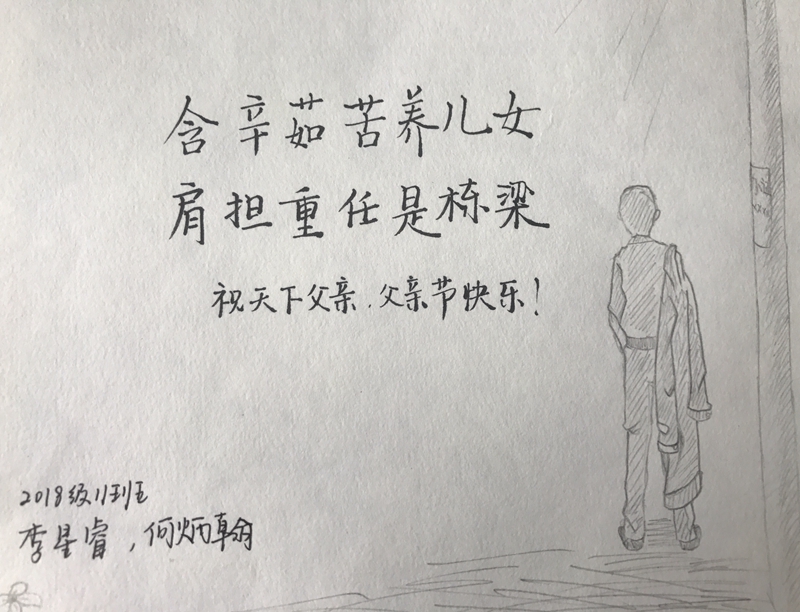 含辛茹苦养儿女
肩担重任是栋梁
祝天下父亲.父亲节快乐！
2018级11班
李星睿，何炳翰